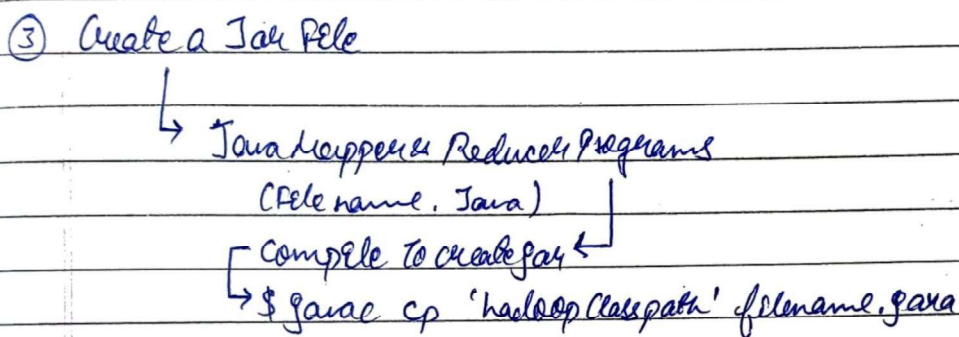 ③ Create a Jar File
Java Mapper & Reducer Programs
(File name. Java)
Compile To create jar
$ javac cp 'hadoop Classpath' filename.java